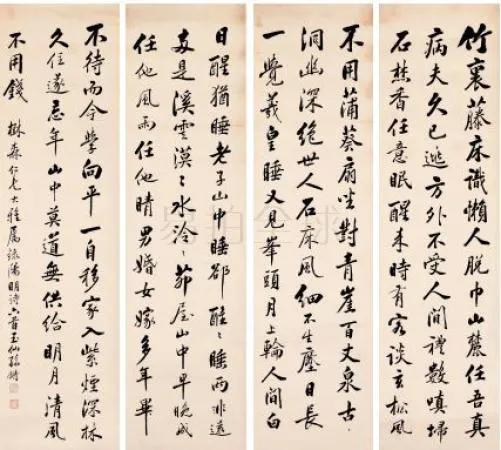 竹裏藤床識懶人脫巾山麓任吾真
病夫久已逃方外不受人間禮數嗔掃
石焚香任意眠醒来時有客談玄松風
不用蒲葵扇坐對青崖百丈泉古
洞幽深絕世人石床風細不生塵日長
一覺羲皇睡又見峯頭月上輪人間白
日醒猶睡老子山中睡郤醒〻睡兩非還
兩是溪雲漠〻水泠〻茆屋山中早晚成
任他風雨任他晴男婚女嫁多年畢
不待而今學向平一自移家入紫煙深林
久住遂忘年山中莫道無供給明月清風
不用錢 楙森仁兄大雅属錄陽明詩六首玉仙孫鏘
易拍全球